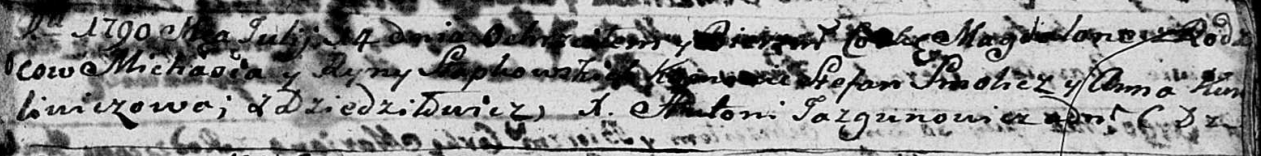 1790 Mca Julij 14 dnia Ochrzciłem y Bierzm Corkę Magdalenę Rodzi
cow Michała y Ryny Słapkowskich Kumowie Stefan Smolicz y Anna Kun
liniczowa; z Dziedziłowicz, X. Antoni Jazgunowicz adm